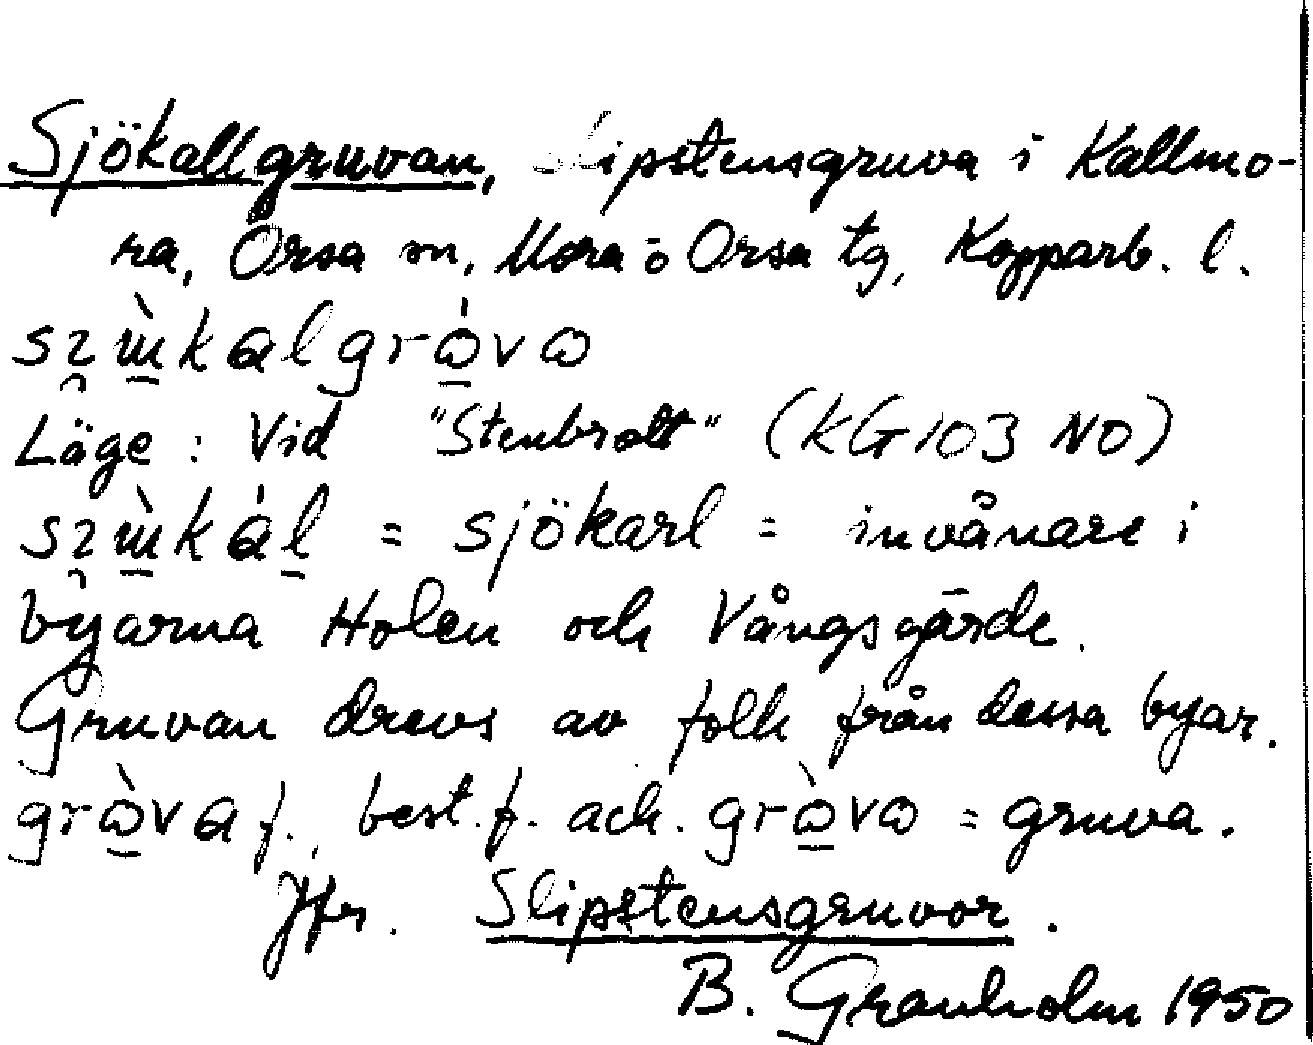 Sjökallgruvan, Slipstensgruva i Kallmo-
ra, Orsa sn, Mora o Orsa tg, Kopparb. l.
Läge : Vid "Stenbrott" (KG 103 NO)
= sjökarl = invånare i
byarna Holen och Vångsgärde.
Gruvan drevs av folk från dessa byar.
f. best. f. ack. = gruva.
Jfr. Slipstensgruvor.
B. Granholm 1950